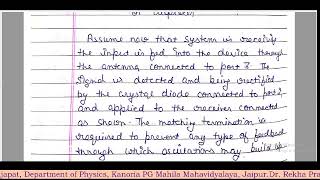 Assume now that system is receiving
the input is fed into the device through
the antenna connected to port 3. The
signal is detected and being rectified
by the crystal diode connected to port 2,
and applied to the receiver connected
as shown. The matching termination is
required to prevent any type of feedback
through which oscillations may build up
japat, Department of Physics, Kanoria PG Mahila Mahavidyalaya, Jaipur.Dr. Rekha Pra